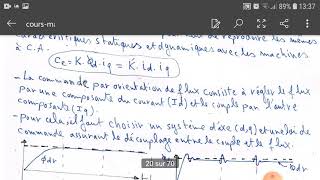 13:37
cours-ma
caractéristiques statiques et dynamiques avec les machines
à C.A.
Ce = K.ϕd.iq = K.id.iq
- La commande par orientation de flux consiste à régler le flux
par une composante du courant (Id) et le couple par l'autre
composante (Iq).
- Pour cela, il faut choisir un système d'axe (d,q) et une loi de
commande assurant le découplage entre le couple et le flux.
ϕdr
20 sur 70